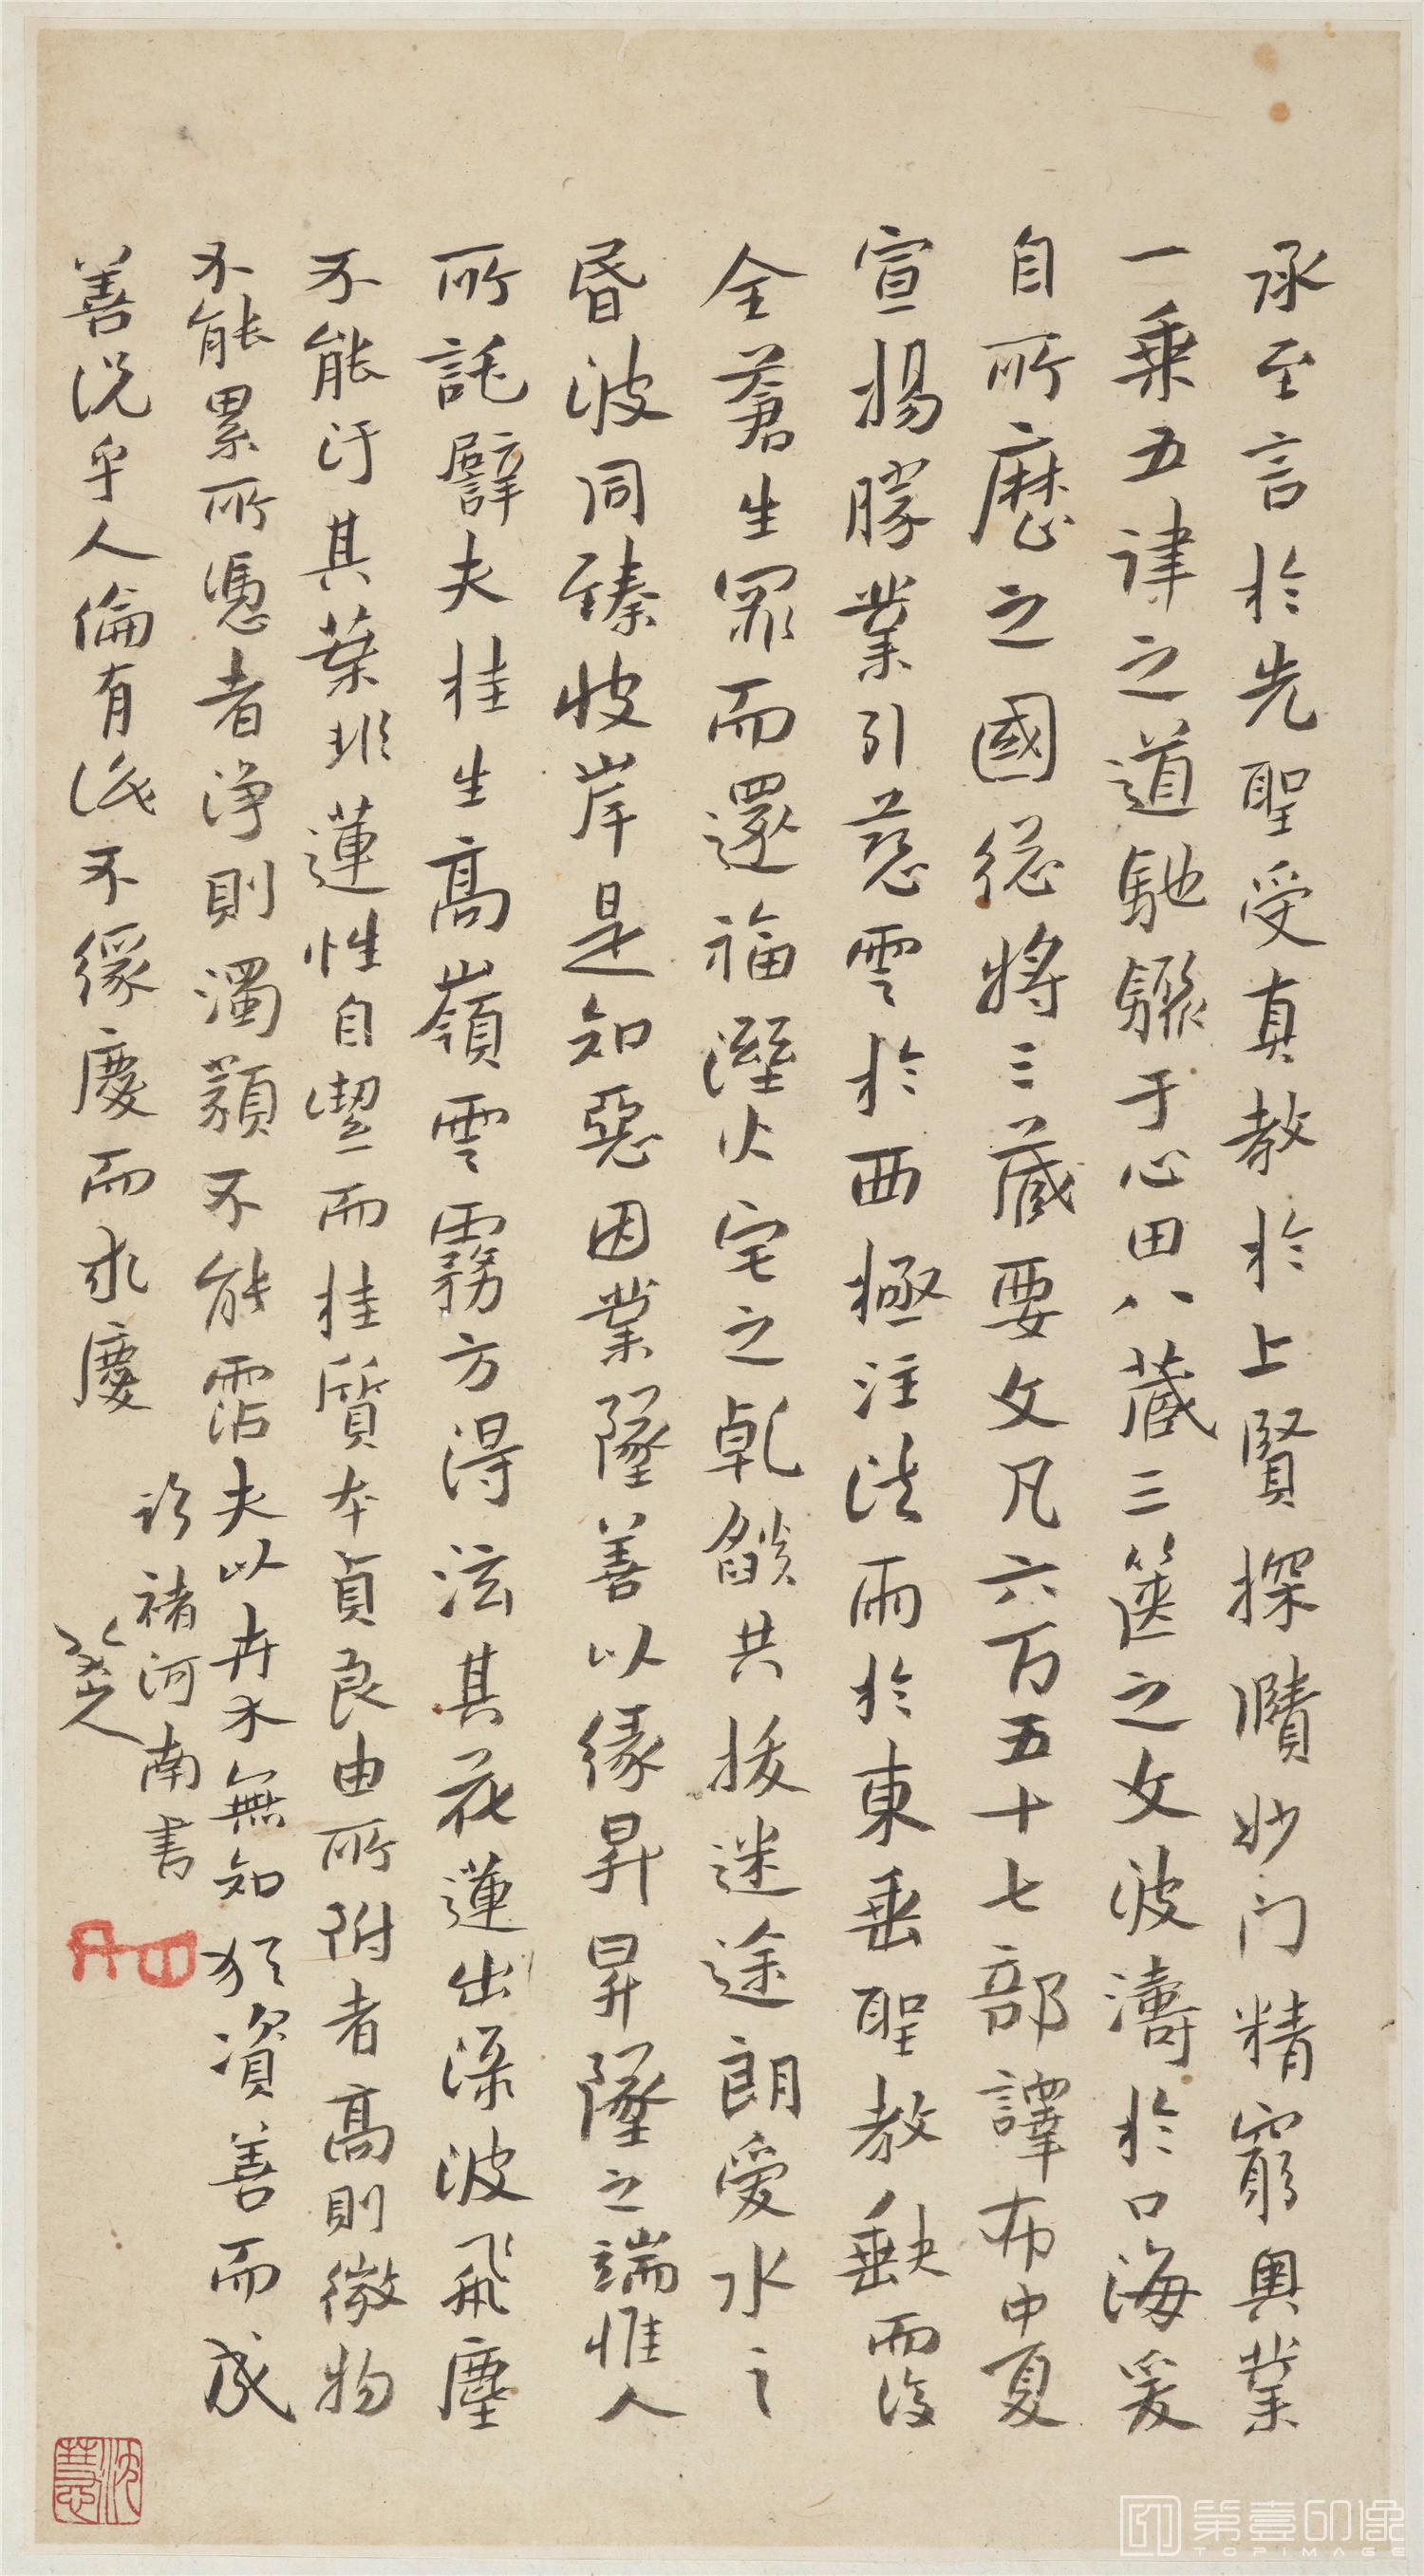 承至言於先聖受真教於上賢探賾妙门精窮奥業
一乗五律之道馳驟于心田八蔵三篋之文波濤於口海爰
自所歴之國総将三蔵要文凡六百五十七部譯布中夏
宣揚勝業引慈雲於西極注法雨於東垂聖教缺而復
全蒼生罪而還福溼火宅之乾燄共拔迷途朗愛水之
昬波同臻彼岸是知惡因業墜善以縁昇昇墜之端惟人
所託譬夫桂生高嶺雲霧方得泫其花蓮出淥波飛塵
不能汙其葉非蓮性自潔而桂質本貞良由所附者高則微物
不能累所憑者浄則濁類不能霑夫以卉木無知猶資善而成
善况乎人倫有識不縁慶而求慶
臨褚河南書
八大山人
沈慧
第壹印像
TOPIMAGE